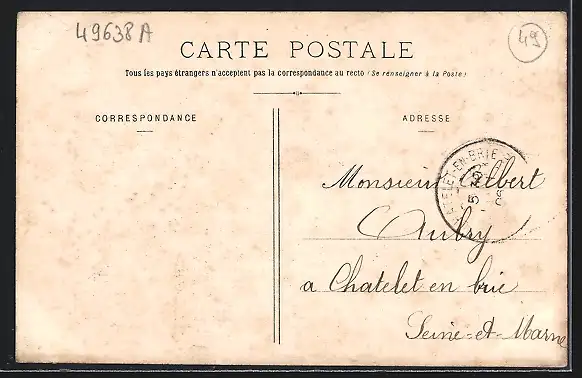 49638A
49
CARTE POSTALE
Tous les pays étrangers n'acceptent pas la correspondance au recto (Se renseigner à la Poste)
CORRESPONDANCE
ADRESSE
TELET-EN-BRIE
Monsieur Albert
Aubry
a Chatelet en brie
Seine-et-Marne